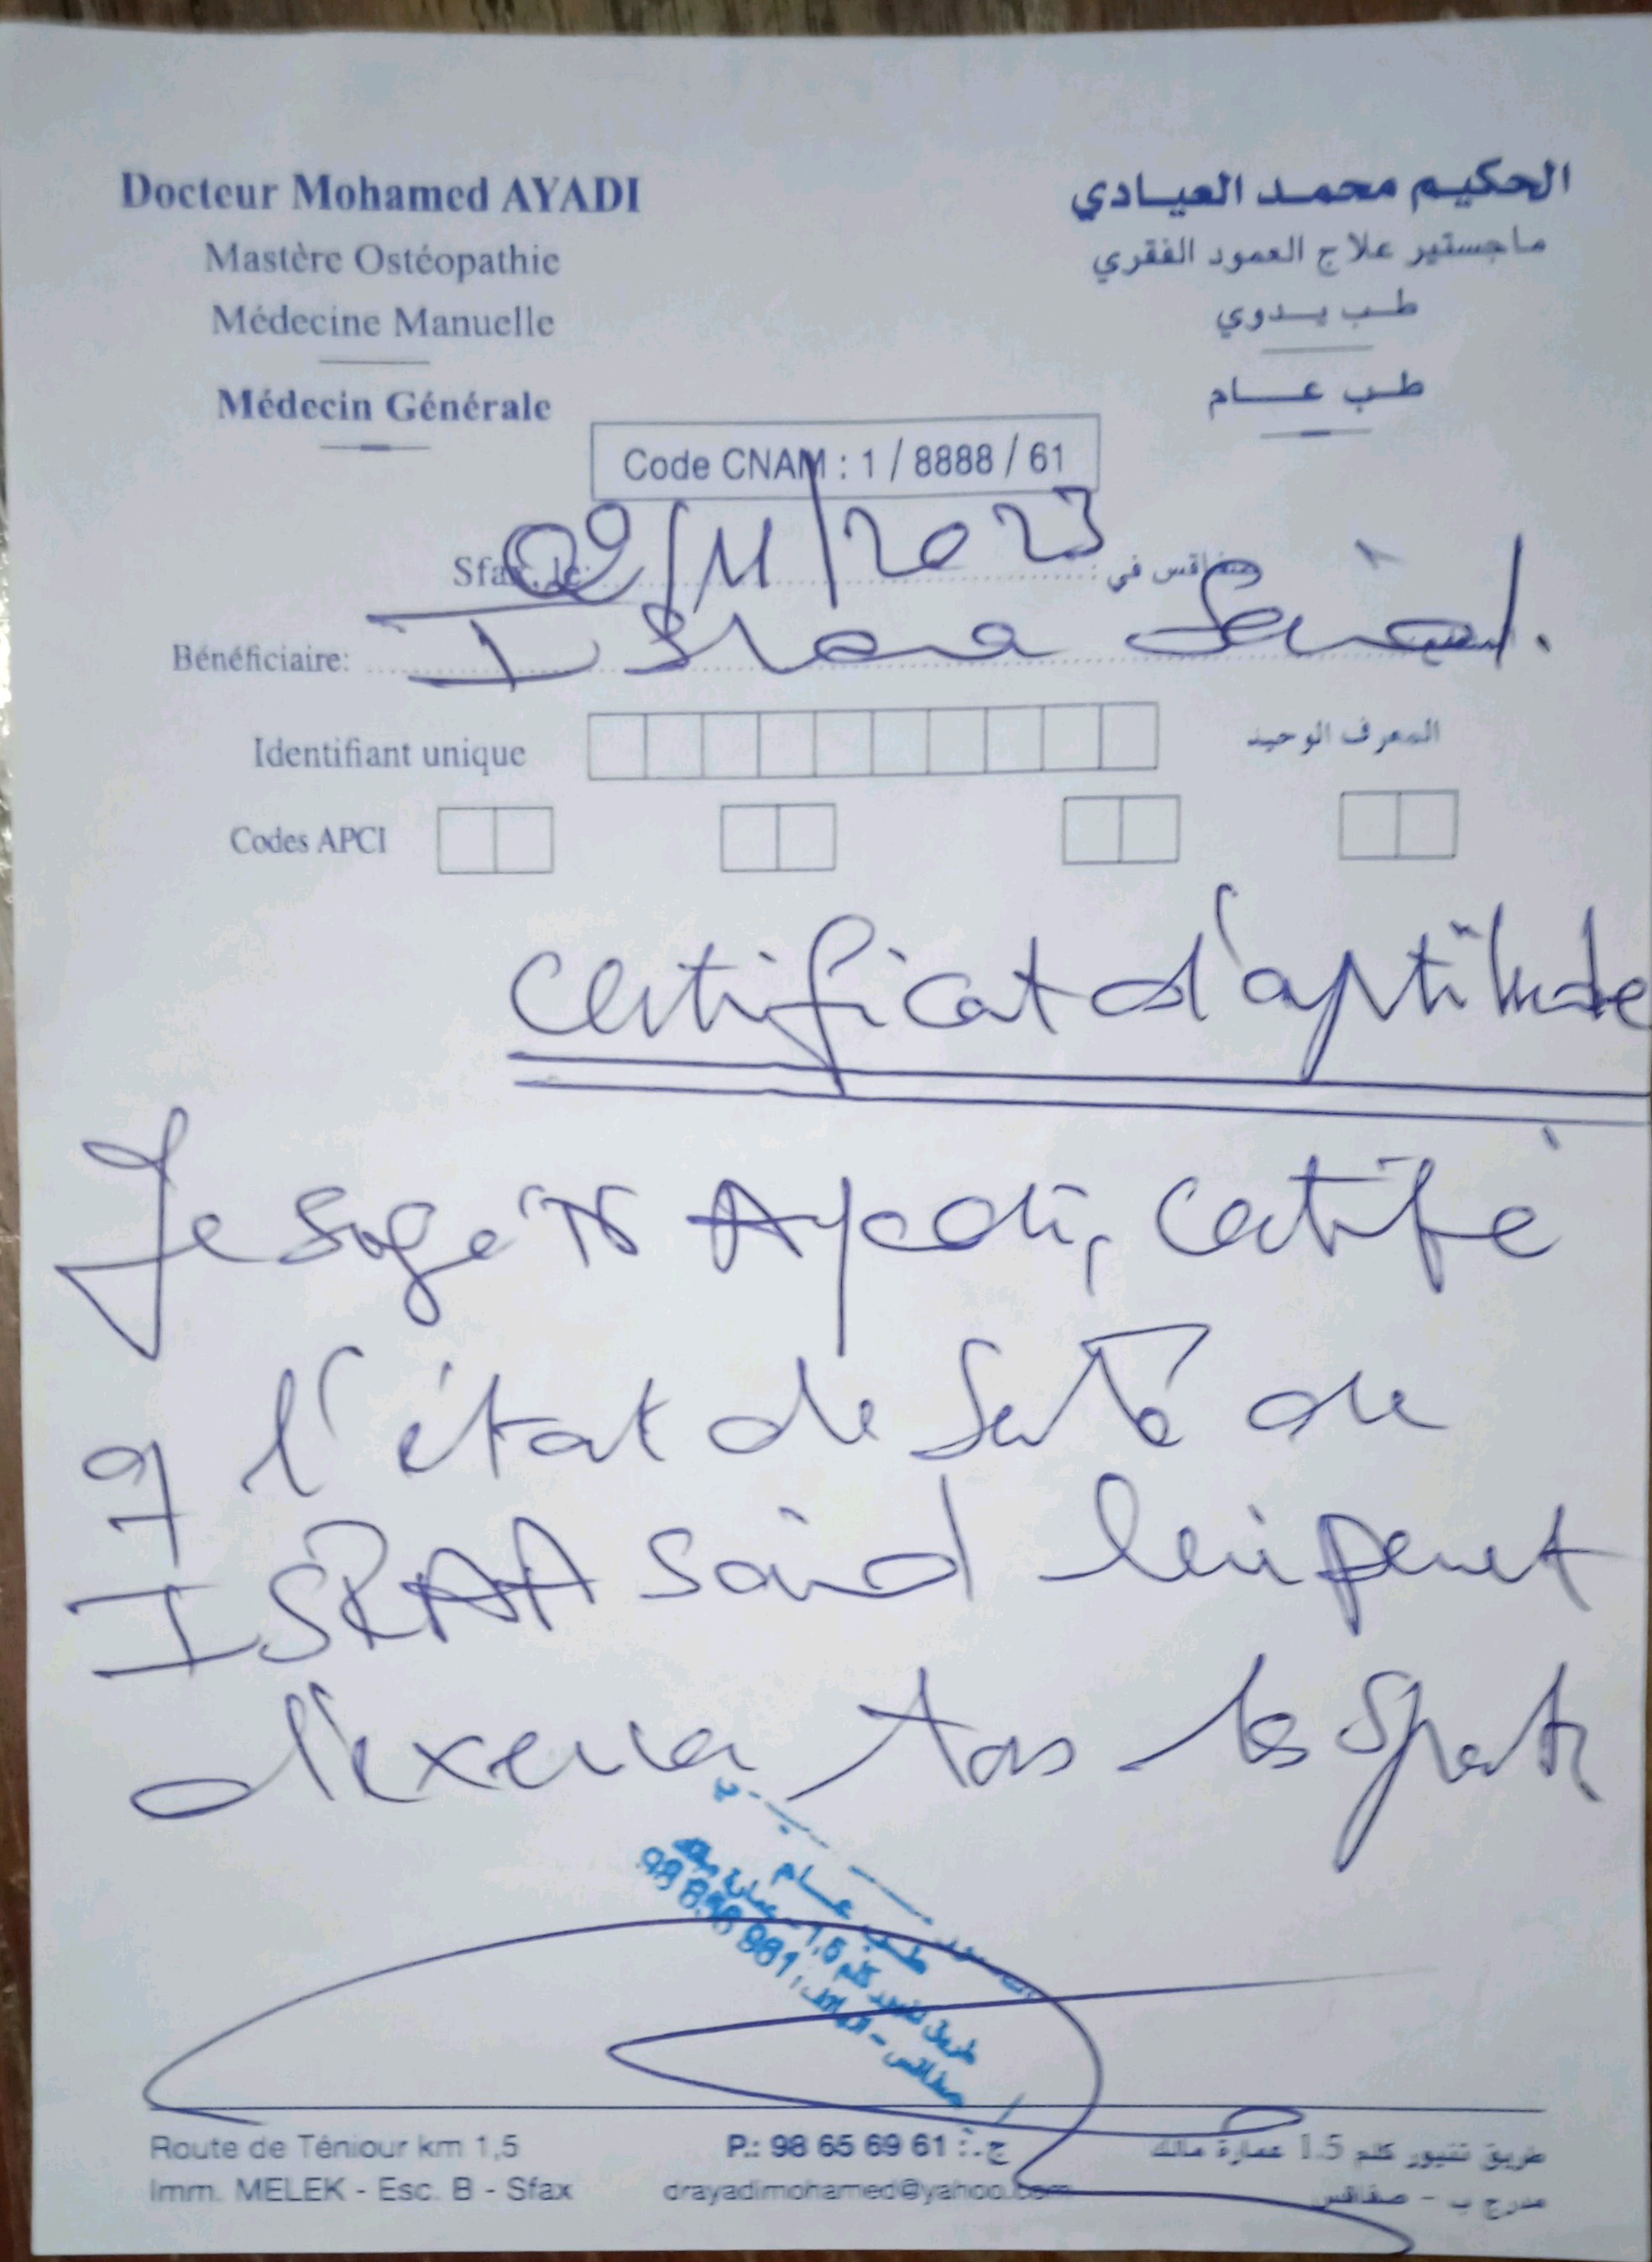 Docteur Mohamed AYADI
Mastère Ostéopathie
Médecine Manuelle
Médecin Générale
الحكيم محمد العيادي
ماجستير علاج العمود الفقري
طب يدوي
طب عام
Code CNAM : 1 / 8888 / 61
Sfax, le: 09/11/2023 صفاقس في
Bénéficiaire: Israa Said.
Identifiant unique المعرف الوحيد
Codes APCI
Certificat d'aptitude
Je Ayadi, certifie
q l'état de santé de
ISRAA Said lui permet
d'exercer tous les sports
طب عام
98 656 961
Route de Téniour km 1,5
Imm. MELEK - Esc. B - Sfax
P.: 98 65 69 61 :.ج
drayadimohamed@yahoo.com
طريق تنيور كلم 1.5 عمارة مالك
مدرج ب - صفاقس